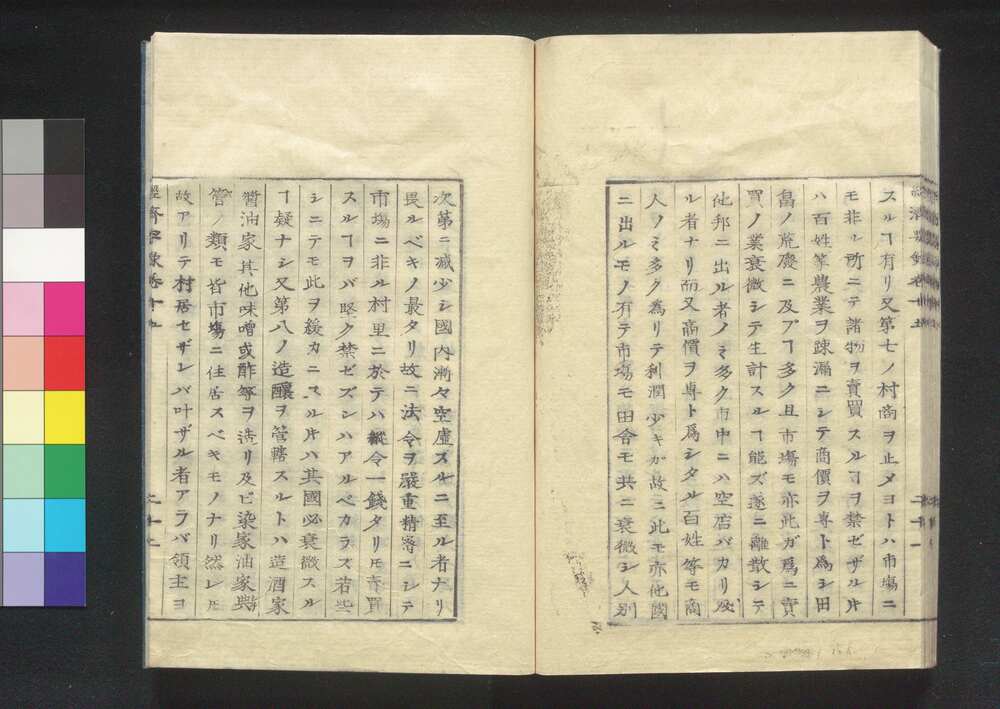 スルヿ有リ又第七ノ村商ヲ止メヨトハ市塲ニ
モ非ル所ニテ諸物ヲ賣買スルヿヲ禁ゼザル片
ハ百姓等農業ヲ踈漏ニシテ商價ヲ専ト為シ田
畠ノ荒廢ニ及プヿ多ク且市塲モ亦此ガ爲ニ賣
買ノ業衰微シテ生計スルヿ能ズ遂ニ離散シテ
他邦ニ出ル者ノミ多ク市中ニハ空店バカリ殘
ル者ナリ而又商價ヲ専ト爲シタル百姓等モ商
人ノミ多ク為リテ利潤少キガ故ニ此モ亦他國
ニ出ルモノ有テ市塲モ田舎モ共ニ衰微シ人別
次第ニ减少シ國内漸々空虚スルニ至ル者ナリ
畏ルベキノ最タリ故ニ法令ヲ嚴重精密ニシテ
市塲ニ非ル村里ニ於テハ縱令一錢タリ𪜈賣買
スルヿヲバ堅ク禁ゼズンハアルベカラズ若些
シニテモ此ヲ緩カニスル片ハ其國必衰微スル
ヿ疑ナシ又第八ノ造釀ヲ管轄スルトハ造酒家
醤油家其他味噌或酢等ヲ造リ及ビ染家油家煙
管ノ類モ皆市塲ニ住居スベキモノナリ然レ𪜈
故アリテ村居セザレバ叶ザル者アラバ領主ヨ